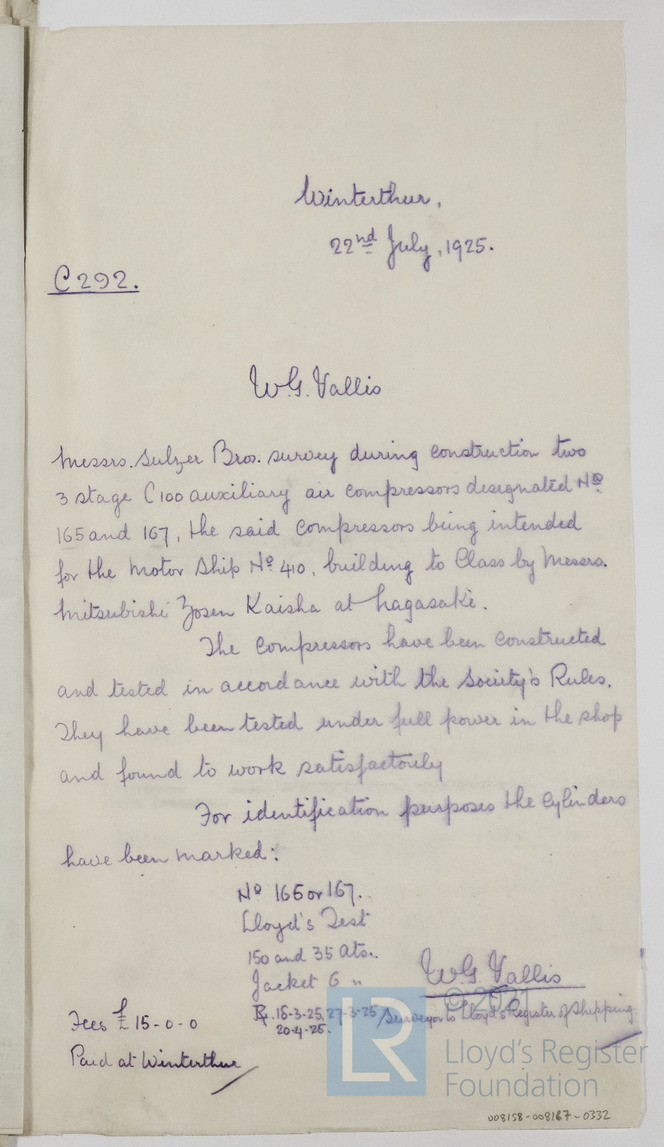 Winterthur,
22nd July, 1925.
C292.
W.G. Vallis
Messrs. Sulzer Bros. survey during construction two
3 stage C100 auxiliary air compressors designated No
165 and 167, the said compressors being intended
for the Motor Ship No 410, building to Class by Messrs.
Mitsubishi Zosen Kaisha at Nagasaki.
The compressors have been constructed
and tested in accordance with the Society's Rules.
They have been tested under full power in the shop
and found to work satisfactorily
For identification purposes the cylinders
have been marked:
No 165 or 167.
Lloyd's Test
150 and 35 Ats..
Jacket 6 "
W.G. Vallis
18-3-25, 27-3-25
Surveyor to Lloyd's Register of Shipping
20-4-25.
Fees £15-0-0
Paid at Winterthur
© 2021
LR
Lloyd's Register
Foundation
008158-008167-0332